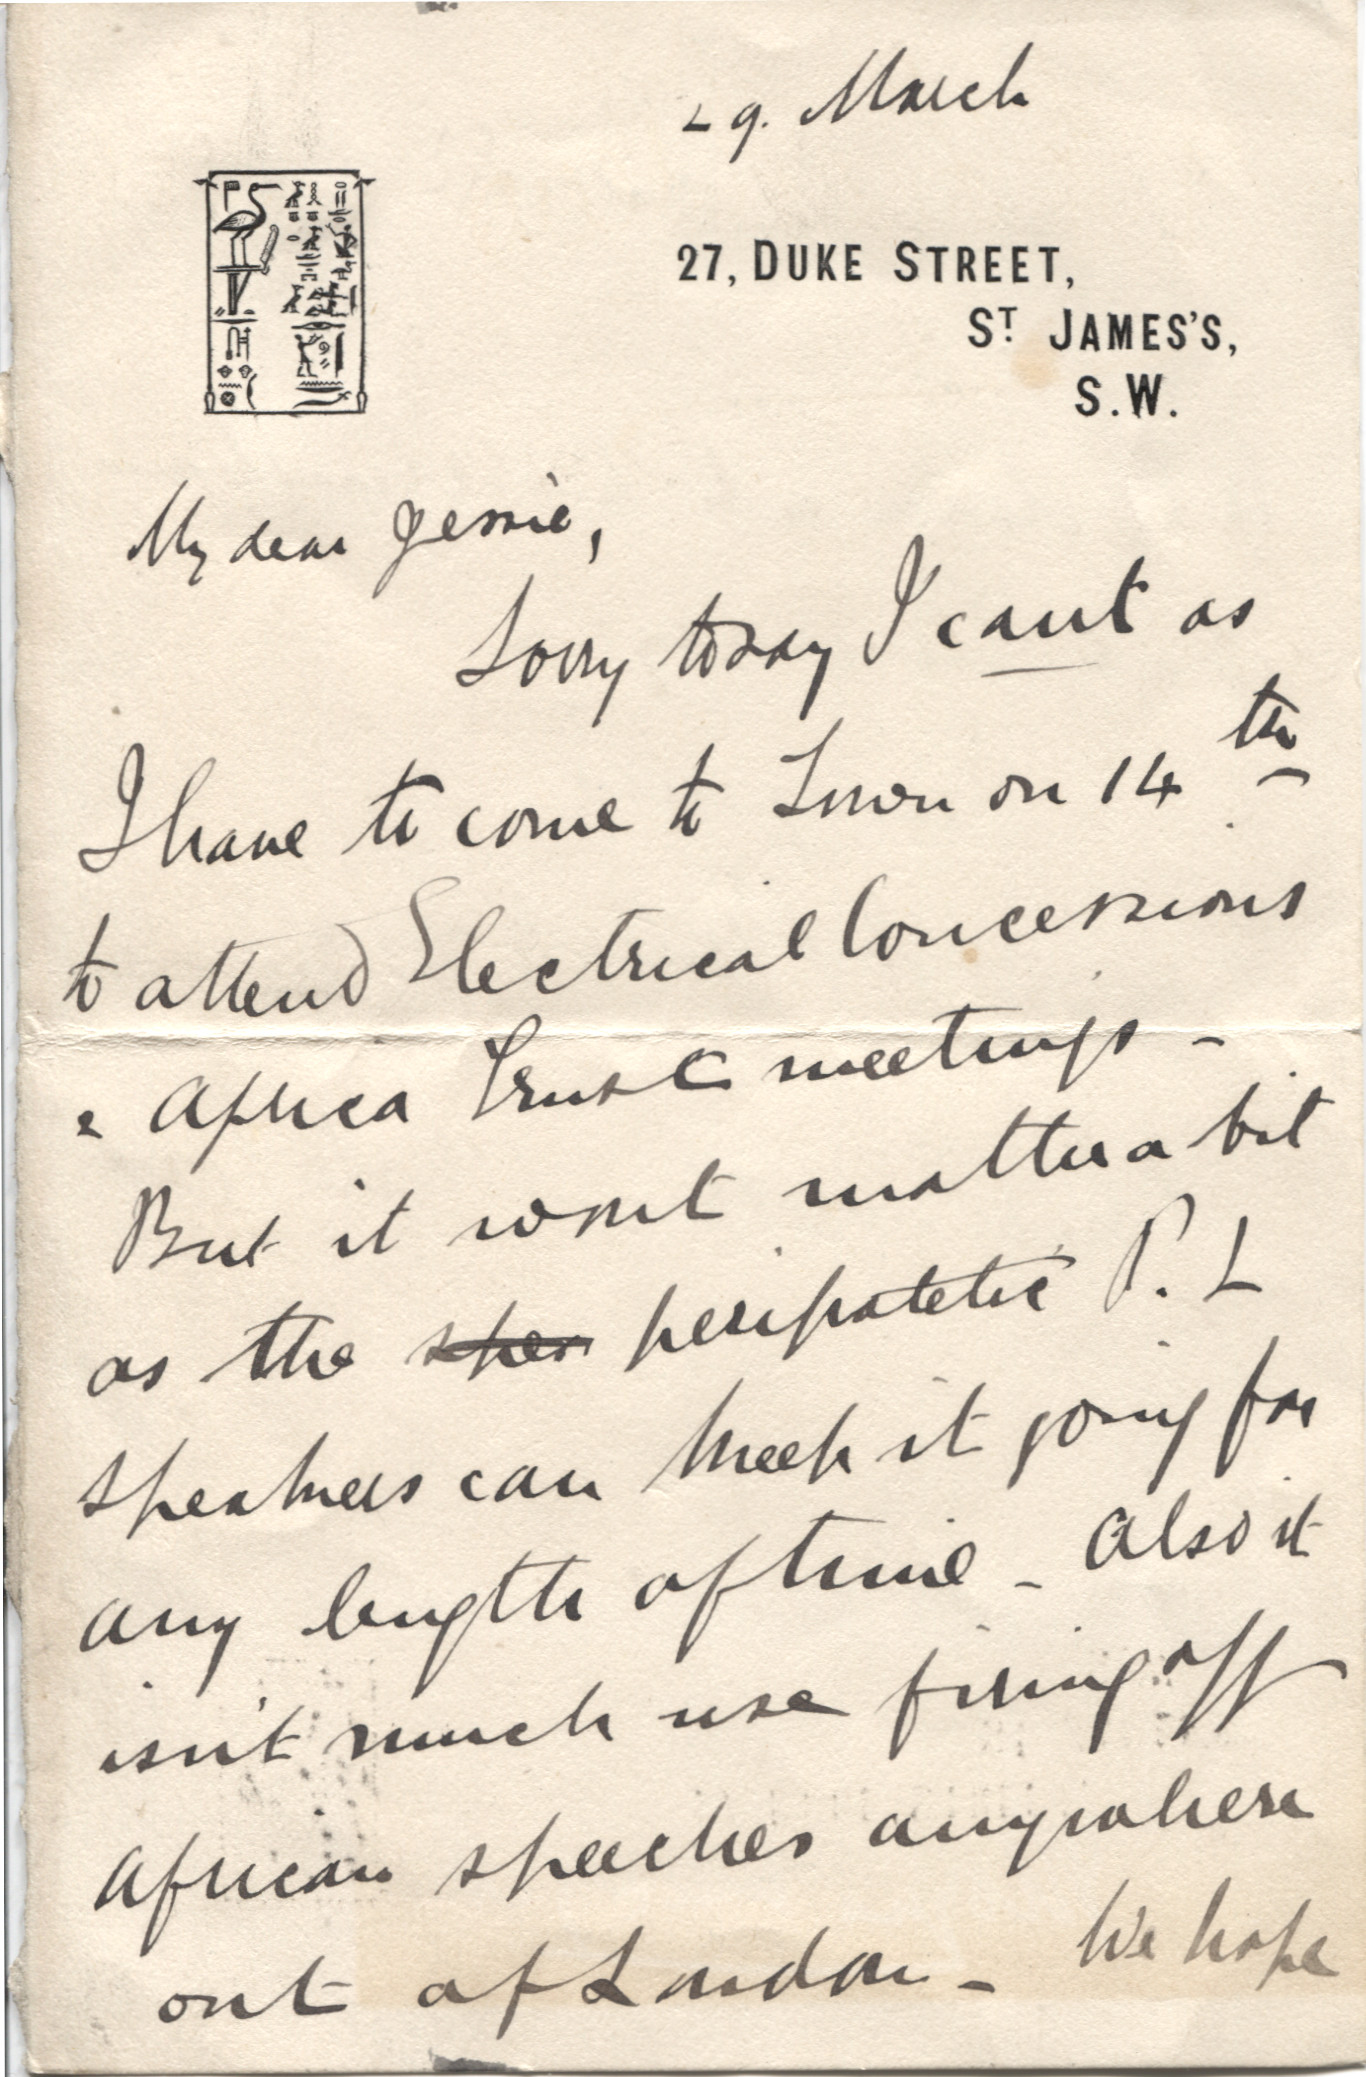 29. March
27, DUKE STREET,
ST JAMES'S,
S.W.
My dear Jessie,
Sorry to say I cant as
I have to come to Town on 14th
to attend Electrical Concessions
& Africa Trust meetings -
But it wont matter a bit
as the sper peripatetic P. L
speakers can keep it going for
any length of time - Also it
isn't much use firing off
African speeches anywhere
out of London - We hope